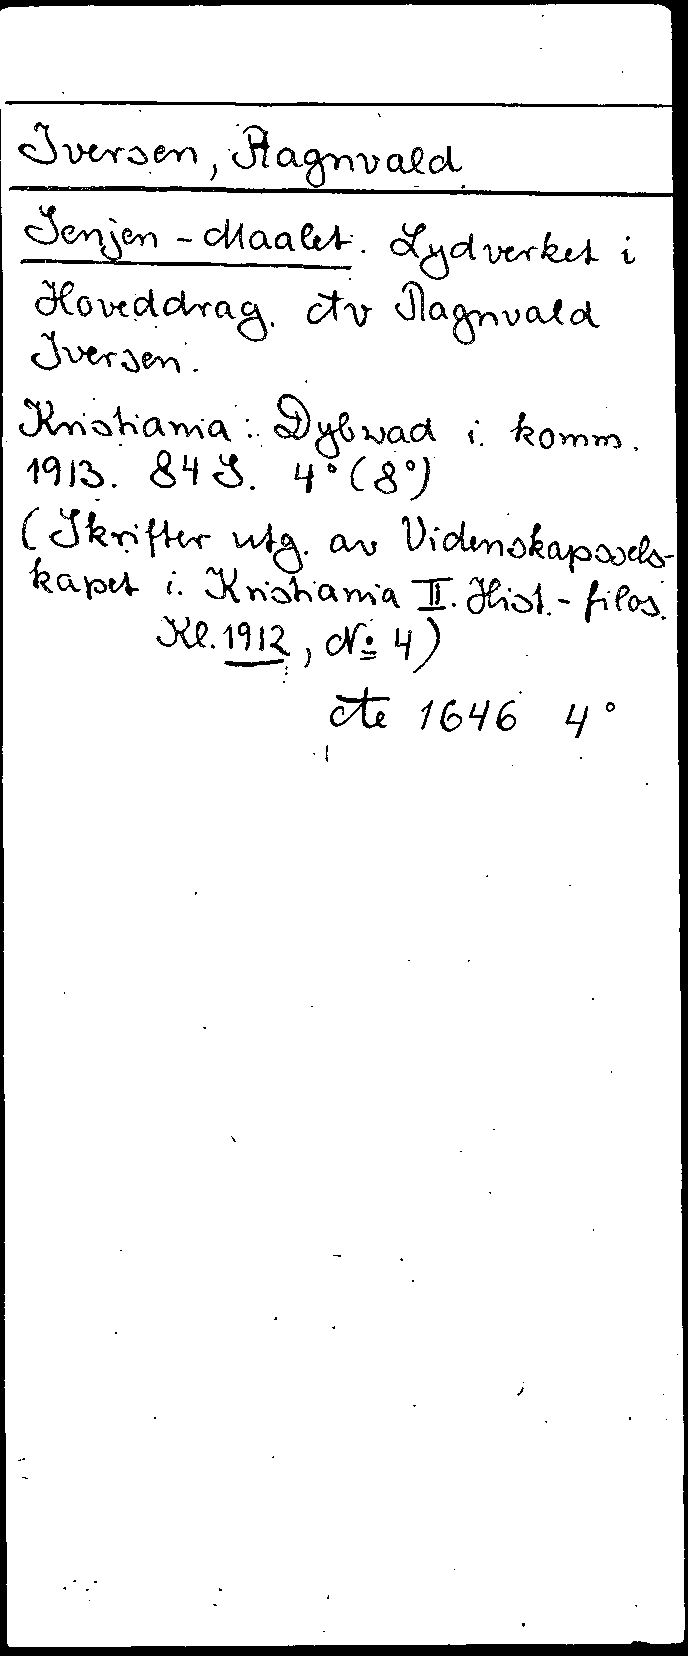 Iversen, Ragnvald
Senjen-Maalet. Lydverket i
Hoveddrag. Av Ragnvald
Iversen.
Kristiania: Dybwad i. komm.
1913. 84 S. 4° (8°)
(Skrifter utg. av Videnskapssels-
kapet i. Kristiania II. Hist.-filos.
Kl. 1912, No 4)
Ac 1646 4°